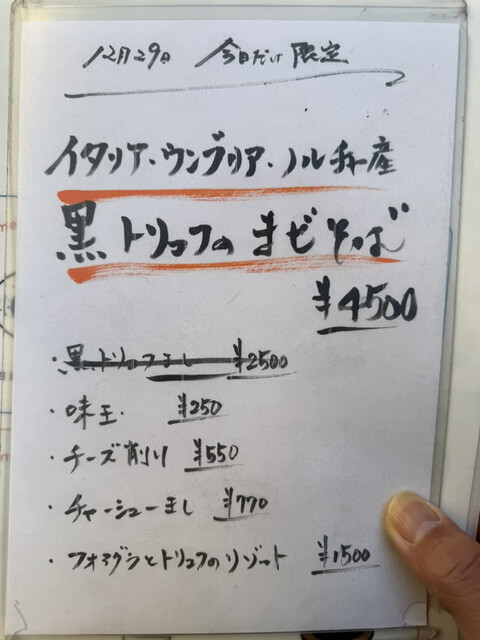 12月29日 今日だけ限定
イタリア・ウンブリア・ノルチャ産
黒トリュフのまぜそば
¥4500
・黒トリュフまし ¥2500
・味玉. ¥250
・チーズ削り ¥550
・チャーシューまし ¥770
・フォアグラとトリュフのリゾット ¥1500